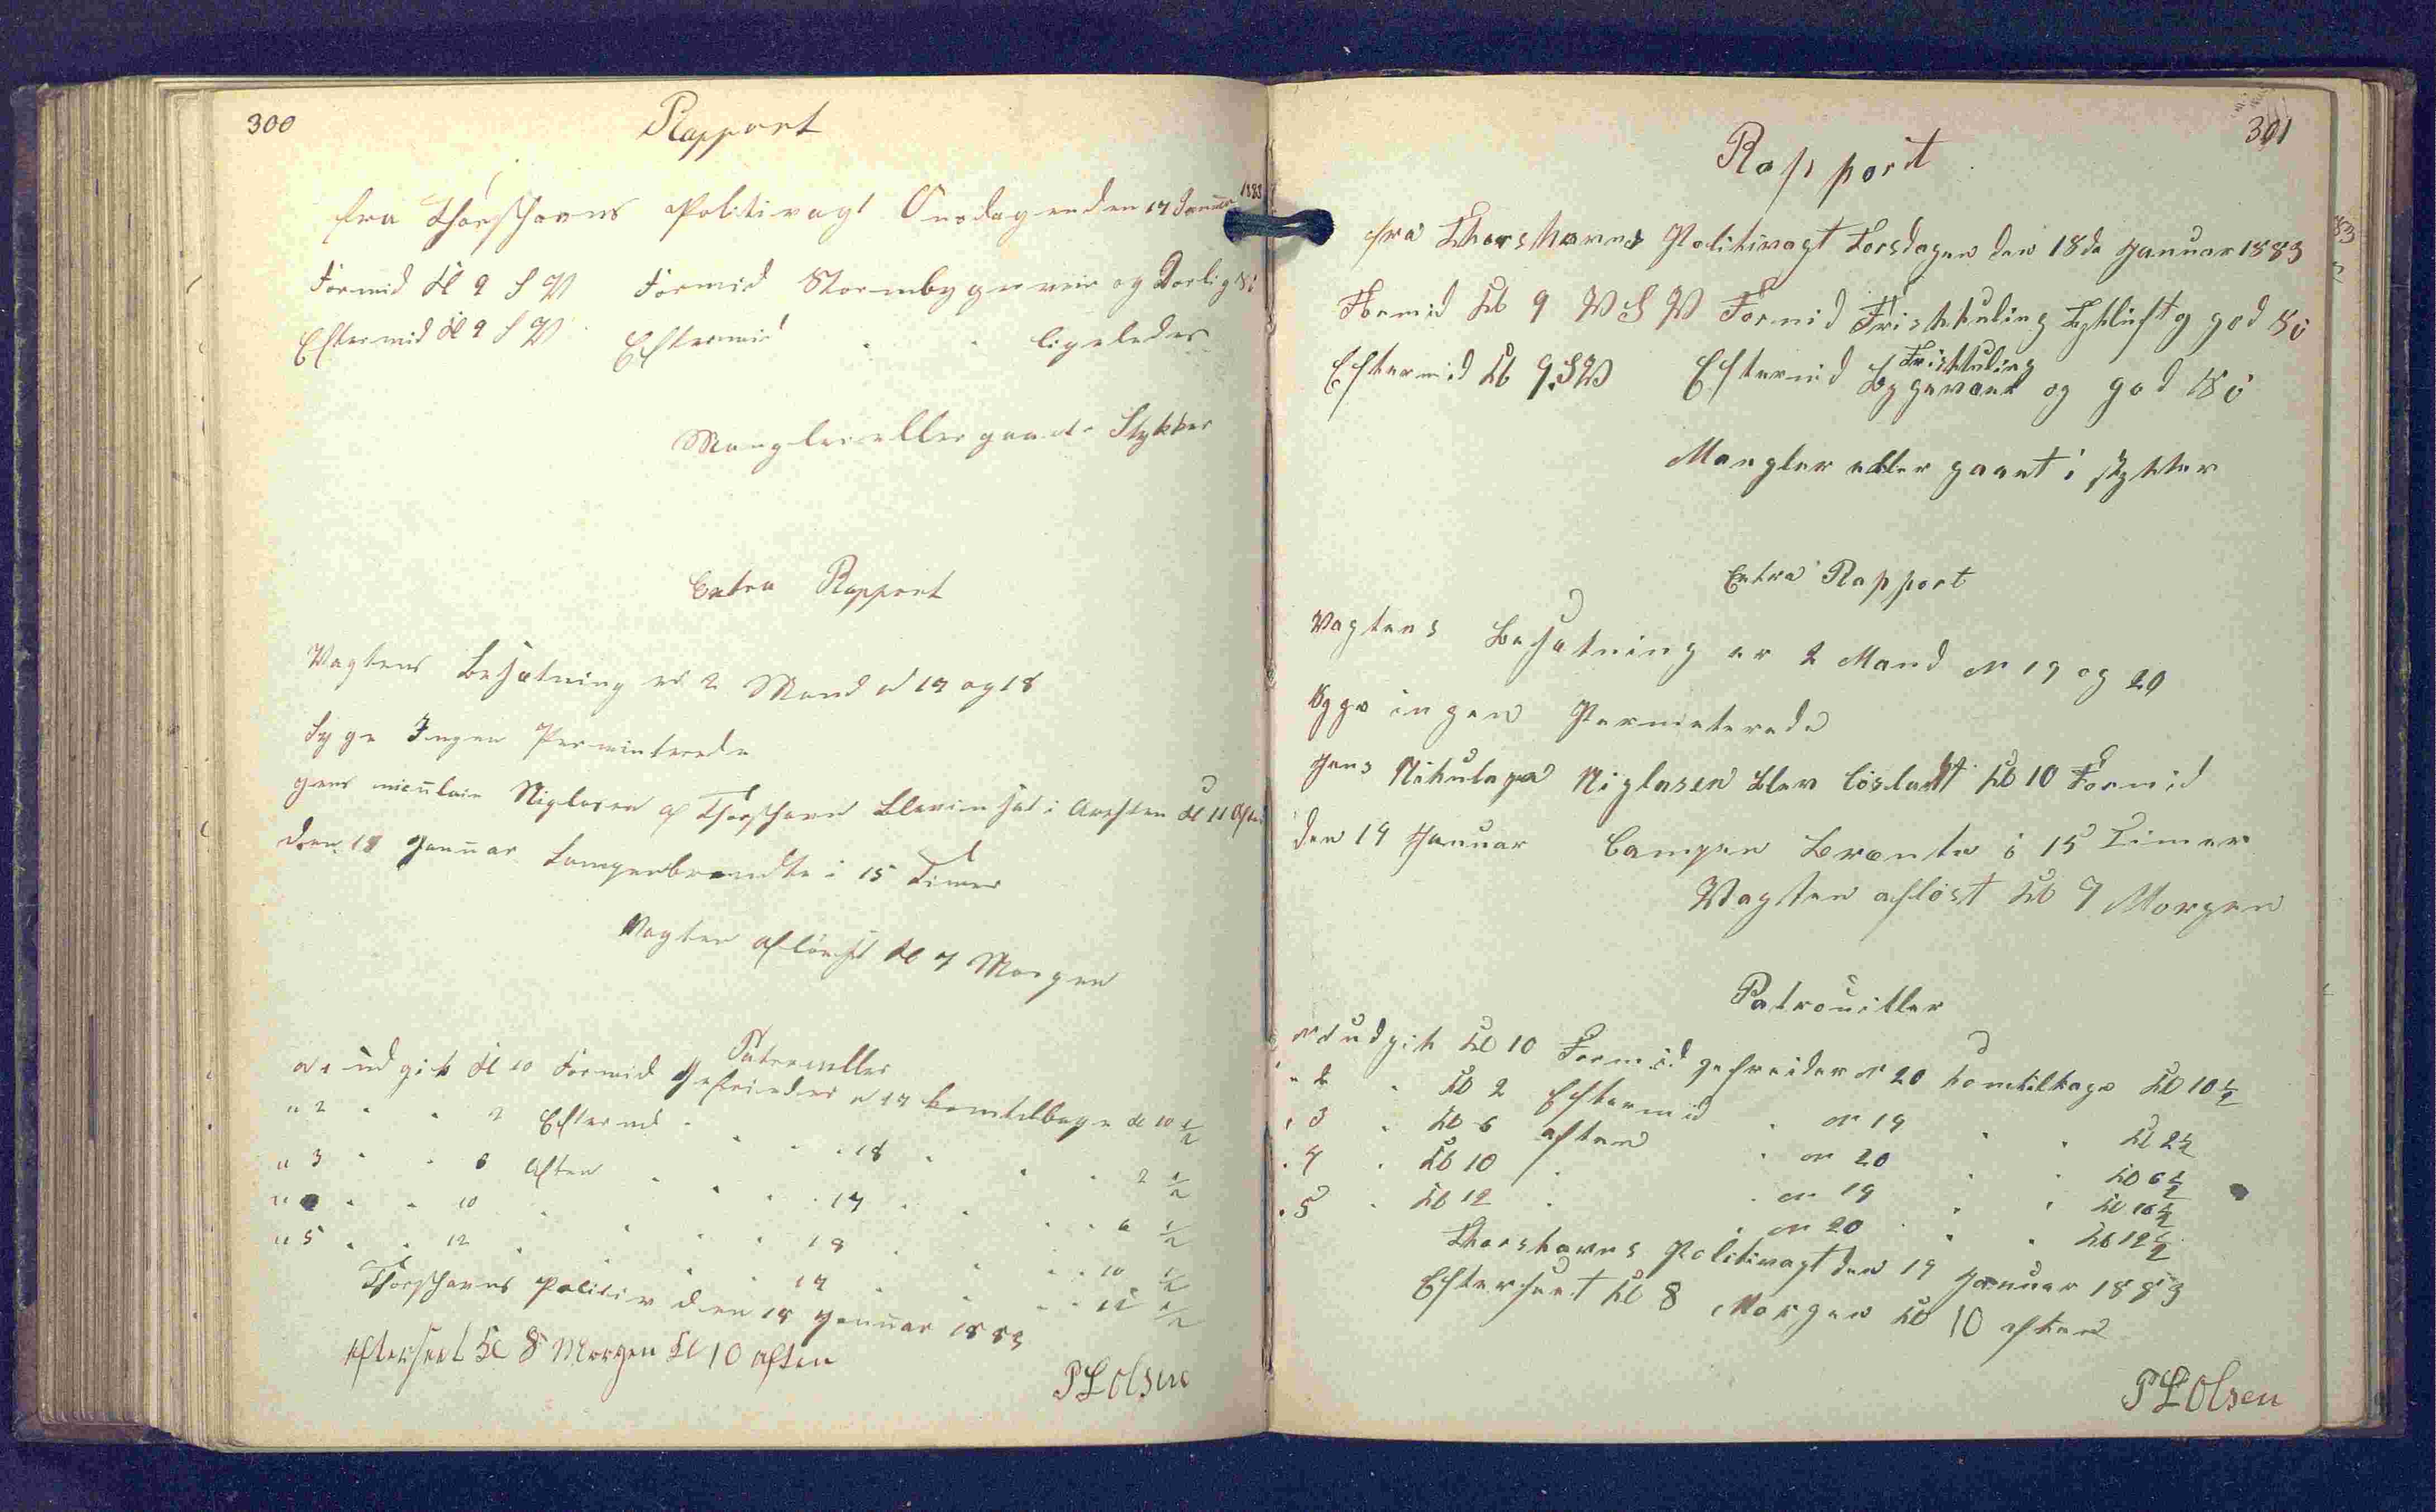 300
Rapport
fra Thorshavns Politivagt Onsdagen den 17 Januar 1883
Formid Kl 9 S V Formid Stormbyger veir og Dorlig Si
Eftermid Kl 9 S V Eftermid " " ligeledes
Mangler eller gaaet i Stykker
Extra Rapport
Vagtens Besætning er 2 Mand N 17 og 18
Syge Ingen Perminterede
Jens Niglasen af Thorshavn Blev in sat i Aresten Kl 11 Aften
den 18 Januar Lampen brændte i 15 Timer
Vagten afløst Kl 9 Morgen
Patrouiller
N 1 udgik Kl 10 Formid Gefreider N 17 komtilbage Kl 10 1/2
" 2 " " 2 Eftermd " " " 18 " " " 2 1/2
" 3 " " 6 Aften " " " 17 " " " 6 1/2
" " " 10 " " " " 18 " " " 10 1/2
" 5 " " 12 " " " " 17 " " " 12 1/2
Thorshavns Politiv den 18 Januar 1883
Efterseet Kl 8 Morgen Kl 10 Aften
P L Olsen
301
Rapport
fra Thorshavns Politivagt Torsdagen den 18de Januar 1883
Formid Kl 9 V S V Formid Friskkuling Tykluft og god Si
Eftermid Kl 9 SV Eftermid Friskkuling Bygevær og god Si
Mangler eller gaaet i stykker
Extra Rapport
Vagtens Besætning er 2 Mand N 19 og 20
Syge ingen Perminterede
Jens Nikulaja Niglasen blev løsladt Kl 10 Formid
den 19 Januar Lampen Brænte i 15 Timer
Vagten afløst Kl 9 Morgen
Patrouiller
N 1 udgik Kl 10 Formid gefreider N 20 komtilbage Kl 10 1/2
" 2 " Kl 2 Eftermid " N 19 " " Kl 2 1/2
" 3 " Kl 6 aften " N 20 " " Kl 6 1/2
" 4 " Kl 10 " " N 19 " " Kl 10 1/2
" 5 " Kl 12 " " N 20 " " Kl 12 1/2
Thorshavns Politivagt den 19 Januar 1883
Efterseet Kl 8 Morgen Kl 10 aften
P L Olsen